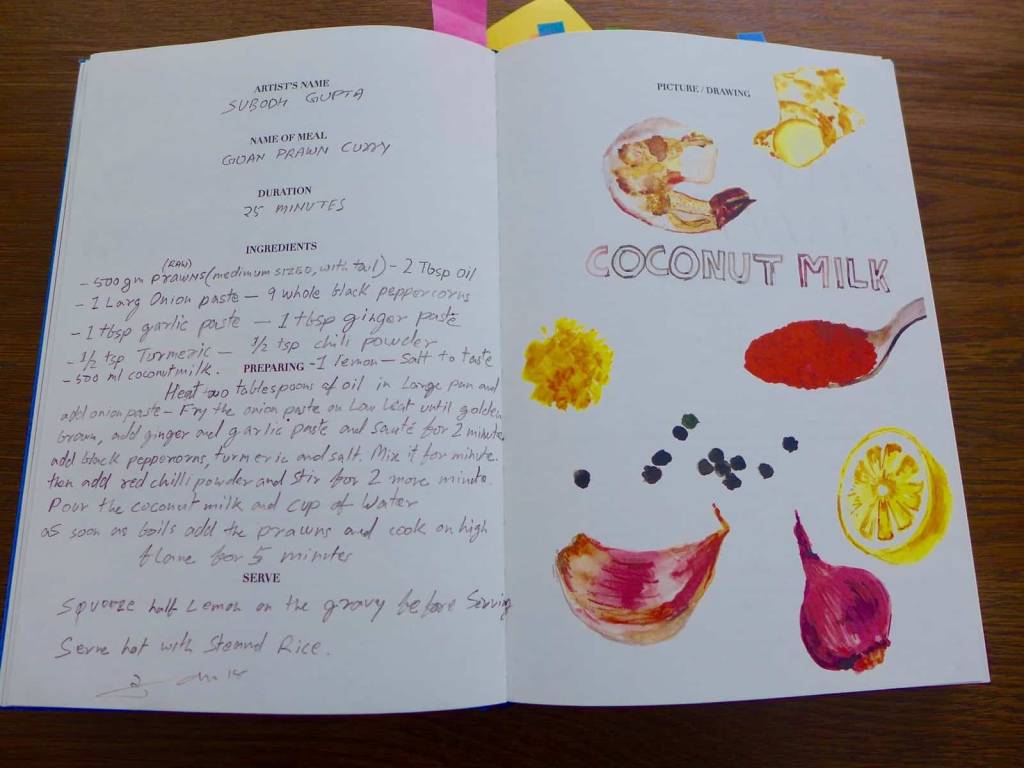 ARTIST'S NAME
SUBODH GUPTA
NAME OF MEAL
GOAN PRAWN CURRY
DURATION
25 MINUTES
INGREDIENTS
- 500gm (RAW) PRAWNS (medimum SIZED, with tail) - 2 Tbsp oil
- 1 Larg Onion paste - 9 whole black peppercorns
- 1 tbsp garlic paste - 1 tbsp ginger paste
- 1/2 tsp Turmeric - 1/2 tsp chili powder
- 500 ml coconutmilk. - 1 lemon - Salt to taste
PREPARING
Heat two tablespoons of oil in Large pan and
add onion paste - Fry the onion paste on Low heat until golden
brown, add ginger and garlic paste and sauté for 2 minute
add black pepporcorns, turmeric and salt. Mix it for minute.
then add red chilli powder and Stir for 2 more minute.
Pour the coconut milk and cup of water
as soon as boils add the prawns and cook on high
flame for 5 minutes
SERVE
Squeeze half Lemon on the gravy before Serving
Serve hot with Steamd Rice.
PICTURE / DRAWING
COCONUT MILK